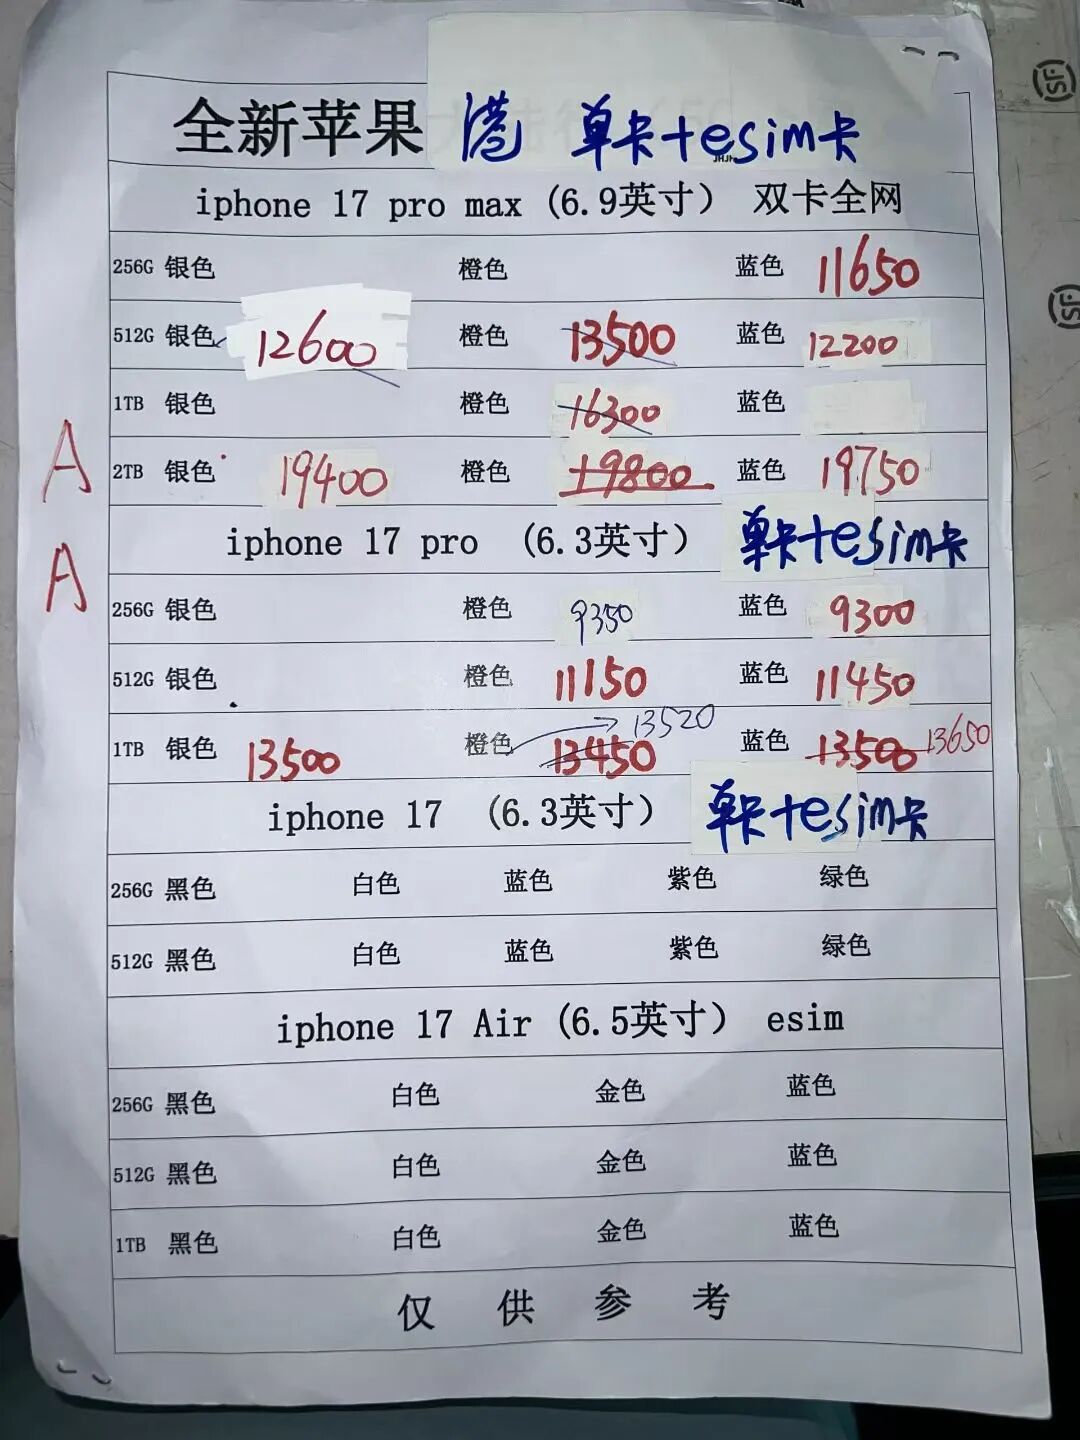 全新苹果 港 单卡+esim卡
iphone 17 pro max (6.9英寸) 双卡全网
256G 银色 橙色 蓝色 11650
512G 银色 12600 橙色 13500 蓝色 12200
1TB 银色 橙色 16300 蓝色
A
2TB 银色 19400 橙色 19800 蓝色 19750
iphone 17 pro (6.3英寸) 单卡+esim卡
A
256G 银色 橙色 9350 蓝色 9300
512G 银色 橙色 11150 蓝色 11450
1TB 银色 13500 橙色 13450 13520 蓝色 13500 13650
iphone 17 (6.3英寸) 单卡+esim卡
256G 黑色 白色 蓝色 紫色 绿色
512G 黑色 白色 蓝色 紫色 绿色
iphone 17 Air (6.5英寸) esim
256G 黑色 白色 金色 蓝色
512G 黑色 白色 金色 蓝色
1TB 黑色 白色 金色 蓝色
仅供参考